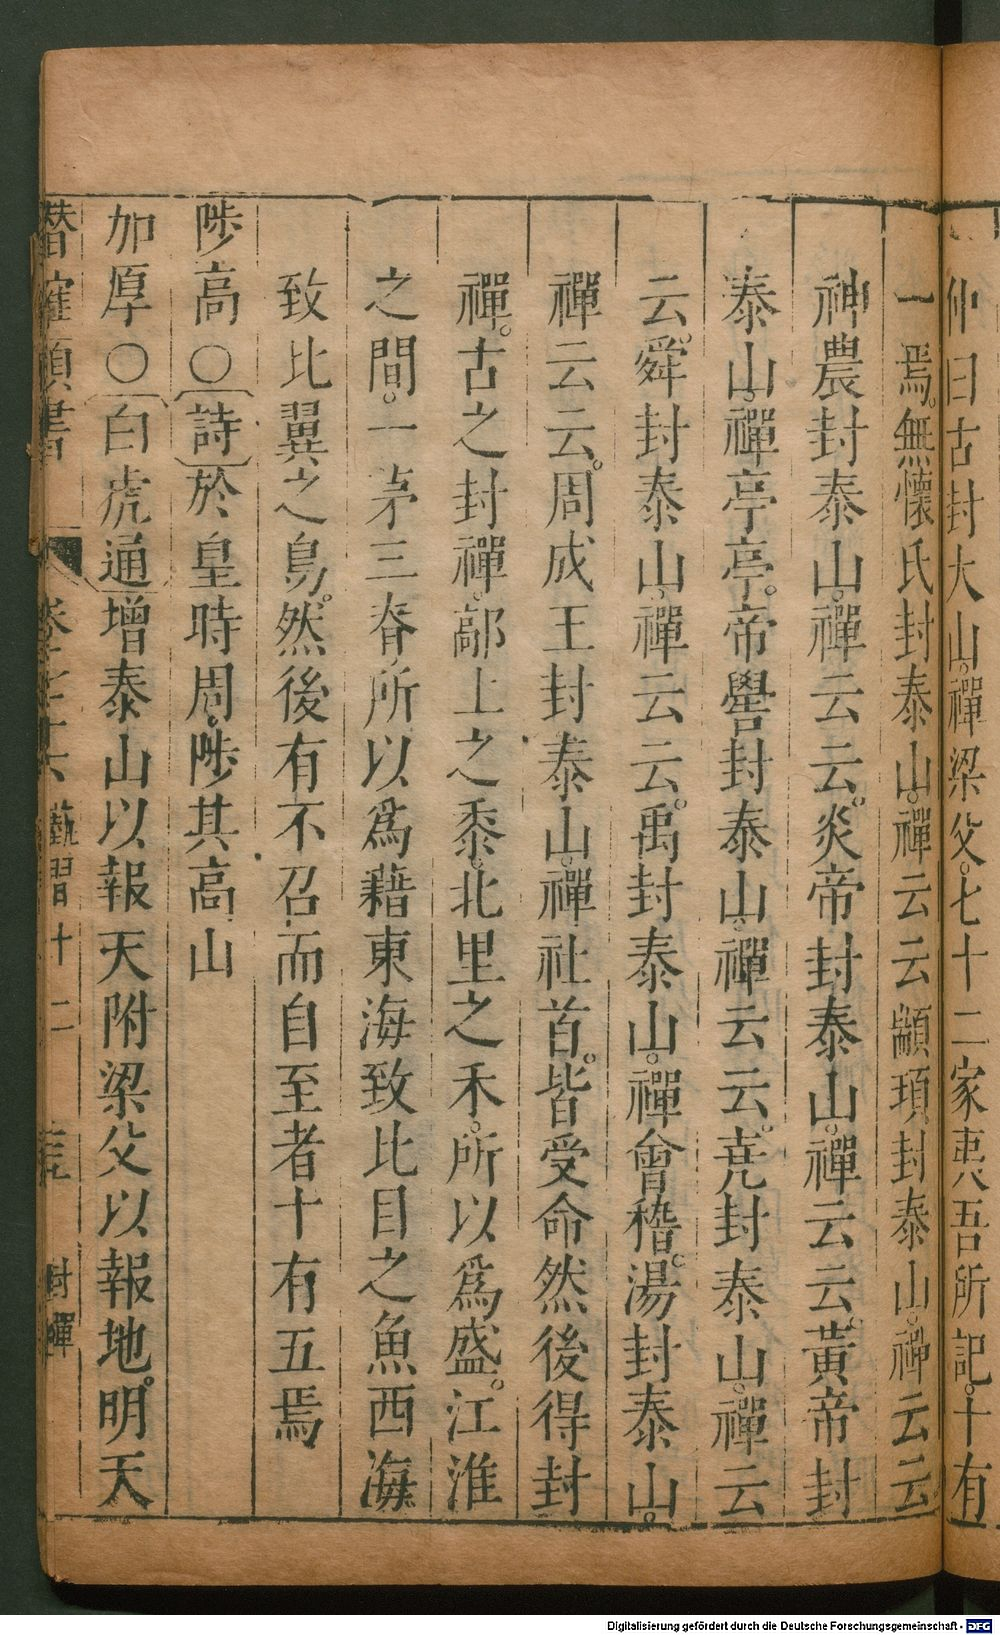 仲曰古封大山。禪梁父。七十二家夷吾所記。十有
一焉。無懷氏封泰山。禪云云顓頊封泰山。禪云云
神農封泰山。禪云云。炎帝封泰山。禪云云。黃帝封
泰山。禪亭亭。帝嚳封泰山。禪云云。尭封泰山。禪云
云。舜封泰山。禪云云。禹封泰山。禪會稽。湯封泰山。
禪云云。周成王封泰山。禪社首。皆受命然後得封
禪。古之封禪。鄗上之黍。北里之禾。所以爲盛。江淮
之間。一茅三脊所以爲藉東海致比目之魚西海
致比翼之鳥。然後有不召而自至者十有五焉
陟高〇〔詩〕於皇時周。陟其高山
加厚〇〔白虎通〕增泰山以報天附梁父以報地。明天
類書 藝習十二 封禪
Digitalisierung gefördert durch die Deutsche Forschungsgemeinschaft - DFG